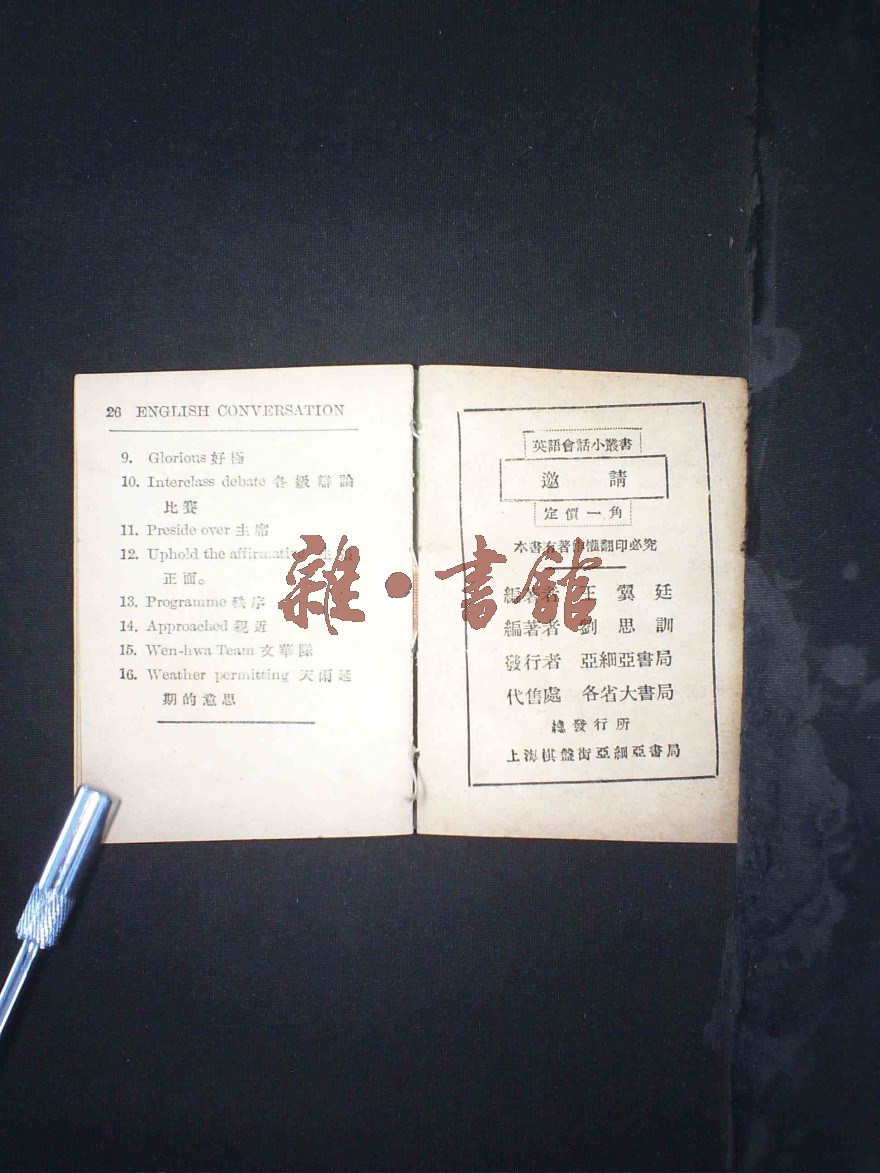 26 ENGLISH CONVERSATION
9. Glorious 好極
10. Interclass debate 各級辯論
比賽
11. Preside over 主席
12. Uphold the affirmative
正面。
13. Programme 秩序
14. Approached 親近
15. Wen-hwa Team 文華隊
16. Weather permitting 天雨延
期的意思
英語會話小叢書
邀請
定價一角
本書有著作權翻印必究
編著者 王翼廷
編著者 劉思訓
發行者 亞細亞書局
代售處 各省大書局
總發行所
上海棋盤街亞細亞書局
雜·書館